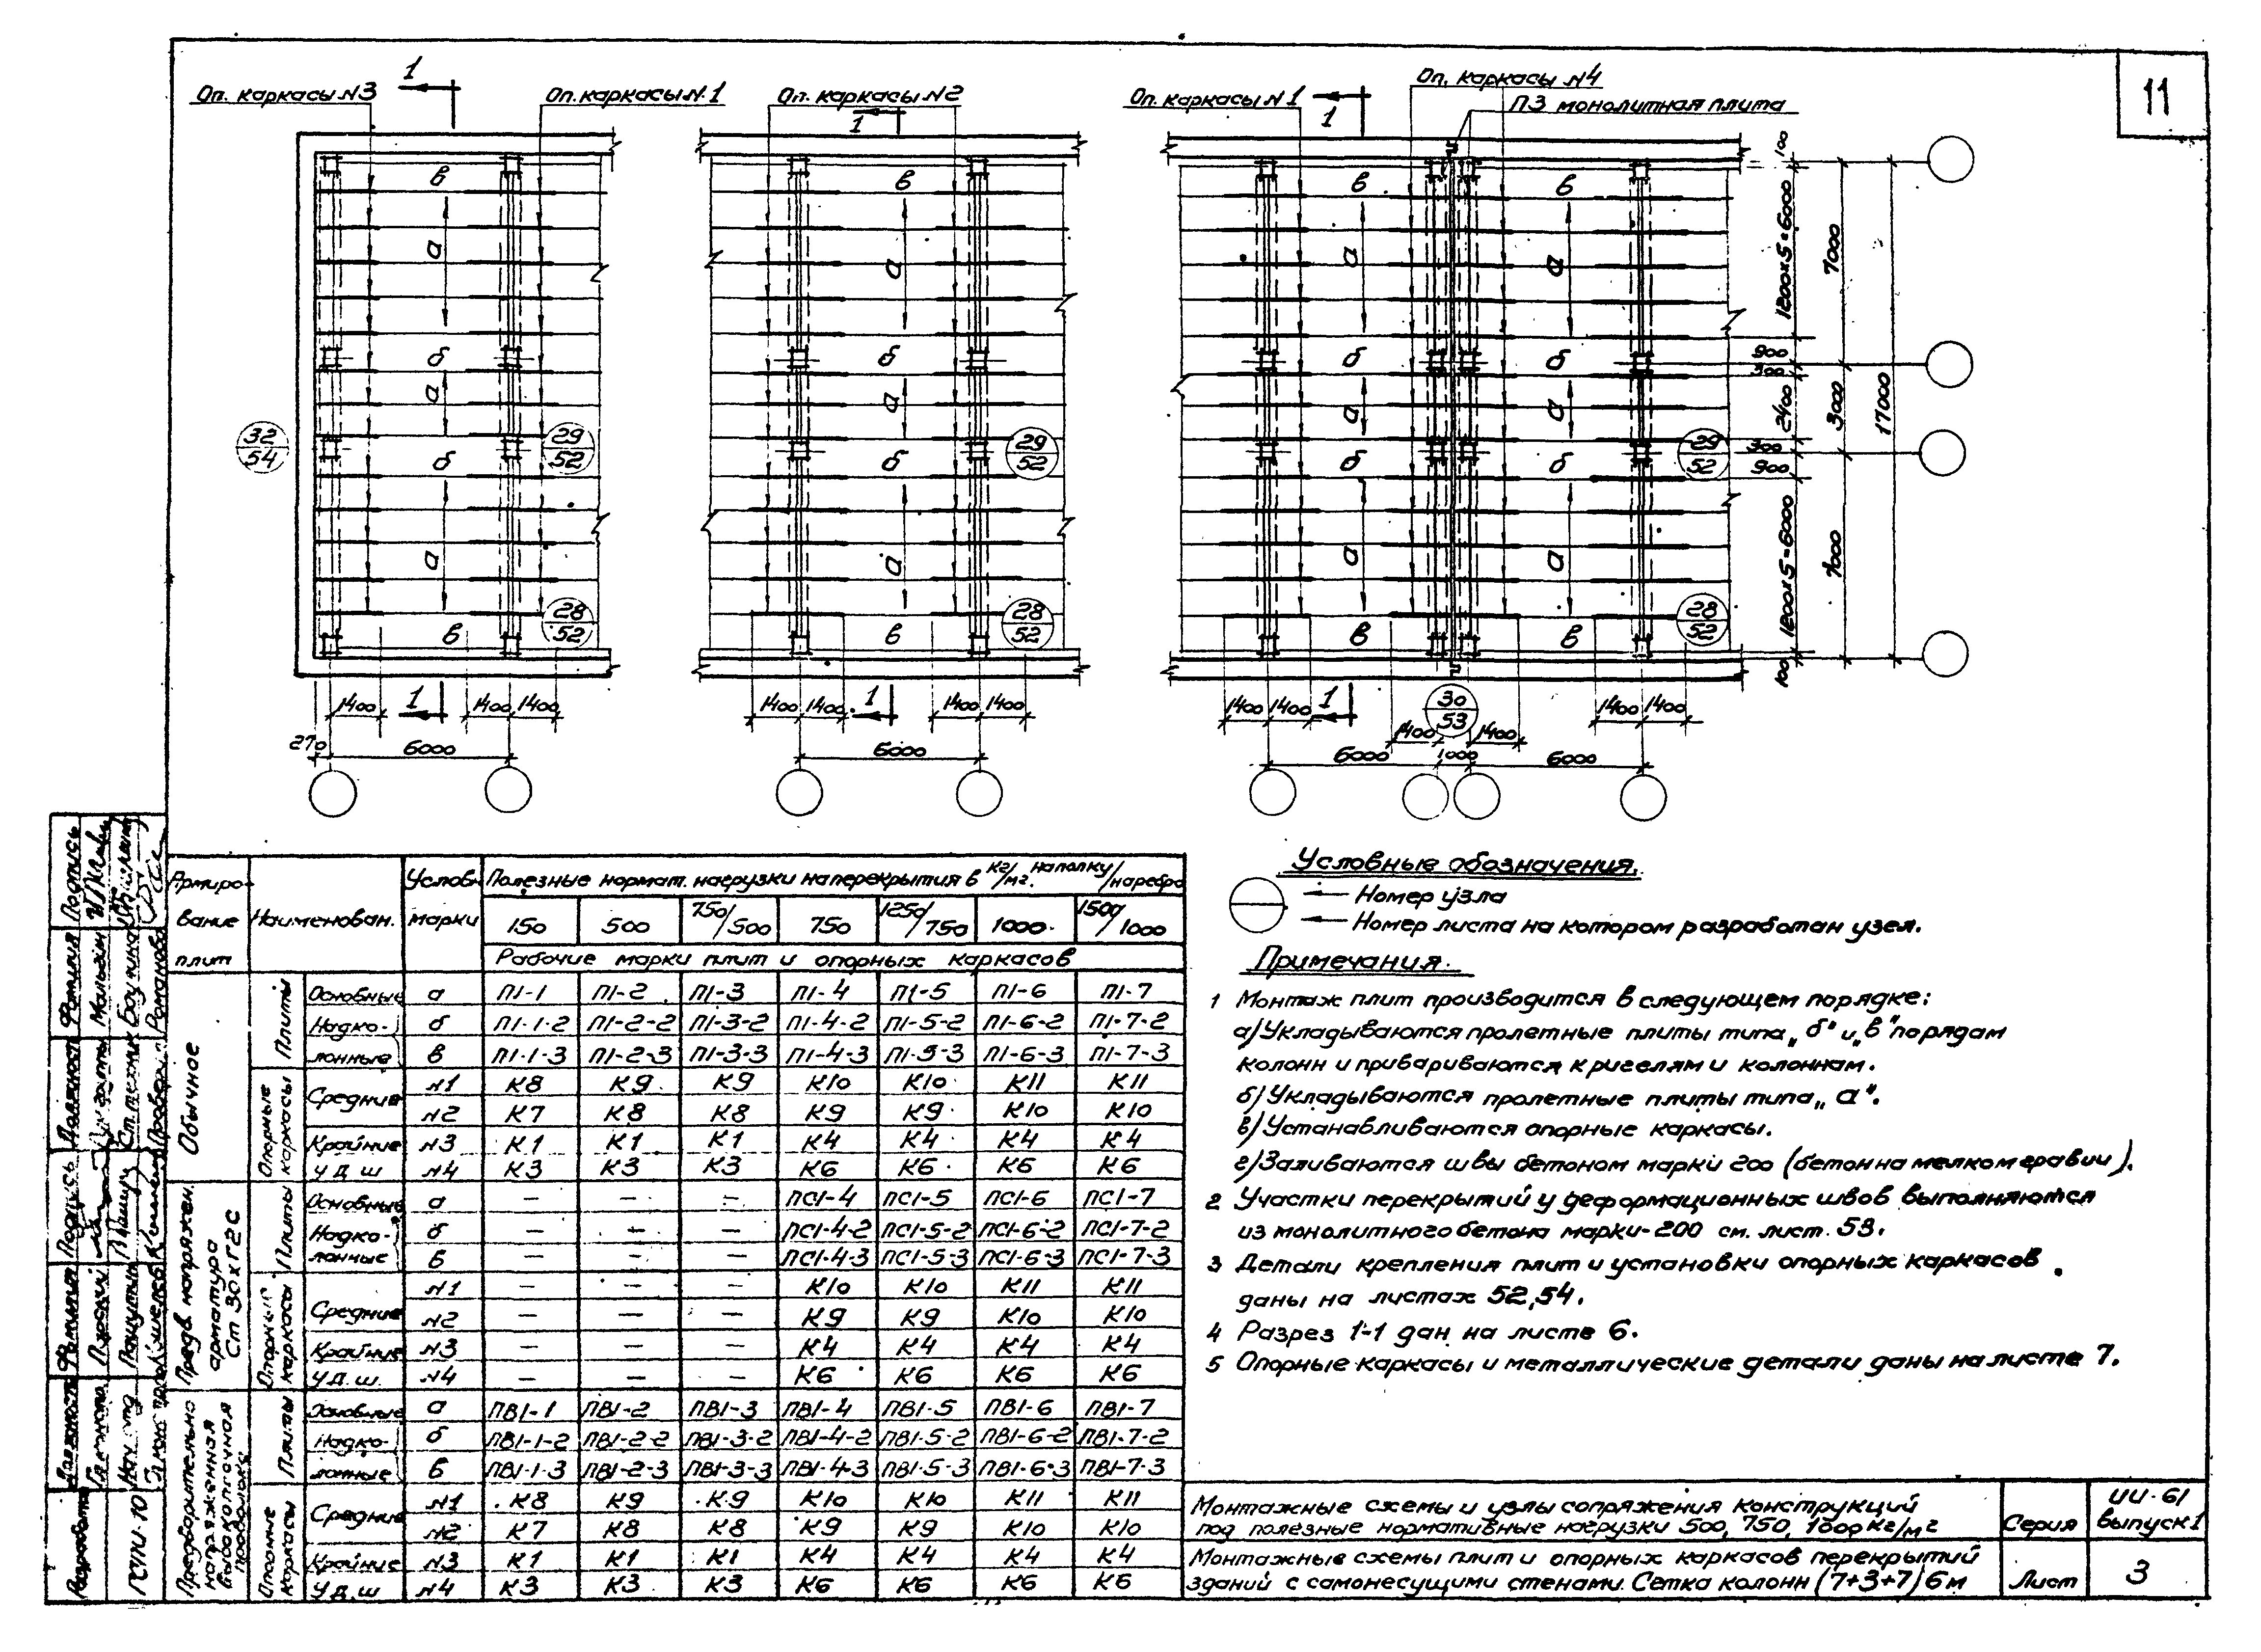 11
Оп. каркасы N3
1
Оп. каркасы N.1
Оп. каркасы N2
1
Оп. каркасы N1
1
Оп. каркасы N4
П3 монолитная плита
в
а
б
а
б
а
в
в
а
б
а
б
а
в
в
а
б
а
б
а
в
в
а
б
а
б
а
в
32
54
29
52
28
52
29
52
28
52
29
52
28
52
30
53
100
1200х5=6000
900
300
2400
300
900
1200х5=6000
100
7000
3000
7000
17000
1400
1
1400
1400
270
6000
1400
1400
1
1400
1400
6000
1400
1400
1
1400
1400
1400
1400
6000
1000
6000
Армиро-
вание
плит
Наименован.
Услов.
марки
Полезные нормат. нагрузки на перекрытия в кг/м2. на полку/на ребро
150 500 750/500 750 1250/750 1000 1500/1000
Рабочие марки плит и опорных каркасов
Обычное
Плиты
Основные а П1-1 П1-2 П1-3 П1-4 П1-5 П1-6 П1-7
Надко- б П1-1-2 П1-2-2 П1-3-2 П1-4-2 П1-5-2 П1-6-2 П1-7-2
лонные в П1-1-3 П1-2-3 П1-3-3 П1-4-3 П1-5-3 П1-6-3 П1-7-3
Опорные каркасы
Средние N1 К8 К9 К9 К10 К10 К11 К11
N2 К7 К8 К8 К9 К9 К10 К10
Крайние N3 К1 К1 К1 К4 К4 К4 К4
У д. ш N4 К3 К3 К3 К6 К6 К6 К6
Предв. напряжен. арматура Ст 30хГ2с
Плиты
Основные а — — — ПС1-4 ПС1-5 ПС1-6 ПС1-7
Надко- б — — — ПС1-4-2 ПС1-5-2 ПС1-6-2 ПС1-7-2
лонные в — — — ПС1-4-3 ПС1-5-3 ПС1-6-3 ПС1-7-3
Опорные каркасы
Средние N1 — — — К10 К10 К11 К11
N2 — — — К9 К9 К10 К10
Крайние N3 — — — К4 К4 К4 К4
У д. ш. N4 — — — К6 К6 К6 К6
Предварительно напряженная высокопрочная проволока
Плиты
Основные а ПВ1-1 ПВ1-2 ПВ1-3 ПВ1-4 ПВ1-5 ПВ1-6 ПВ1-7
Надко- б ПВ1-1-2 ПВ1-2-2 ПВ1-3-2 ПВ1-4-2 ПВ1-5-2 ПВ1-6-2 ПВ1-7-2
лонные в ПВ1-1-3 ПВ1-2-3 ПВ1-3-3 ПВ1-4-3 ПВ1-5-3 ПВ1-6-3 ПВ1-7-3
Опорные каркасы
Средние N1 К8 К9 К9 К10 К10 К11 К11
N2 К7 К8 К8 К9 К9 К10 К10
Крайние N3 К1 К1 К1 К4 К4 К4 К4
У д. ш N4 К3 К3 К3 К6 К6 К6 К6
Условные обозначения.
Номер узла
Номер листа на котором разработан узел.
Примечания.
1 Монтаж плит производится в следующем порядке:
а) Укладываются пролетные плиты типа „б" и „в" по рядам
колонн и привариваются к ригелям и колоннам.
б) Укладываются пролетные плиты типа „а".
в) Устанавливаются опорные каркасы.
г) Заливаются швы бетоном марки 200 (бетон на мелком гравии).
2 Участки перекрытий у деформационных швов выполняются
из монолитного бетона марки-200 см. лист. 53.
3 Детали крепления плит и установки опорных каркасов
даны на листах 52,54.
4 Разрез 1-1 дан на листе 6.
5 Опорные каркасы и металлические детали даны на листе 7.
Монтажные схемы и узлы сопряжения конструкций
под полезные нормативные нагрузки 500, 750, 1000 кг/м2
Серия
ИИ-61
выпуск 1
Монтажные схемы плит и опорных каркасов перекрытий
зданий с самонесущими стенами. Сетка колонн (7+3+7)6м
Лист
3
Подпись
Фамилия
Должность
Подпись
Фамилия
Должность
Ст. техник
Романова
Разработан
ГСПИ-10